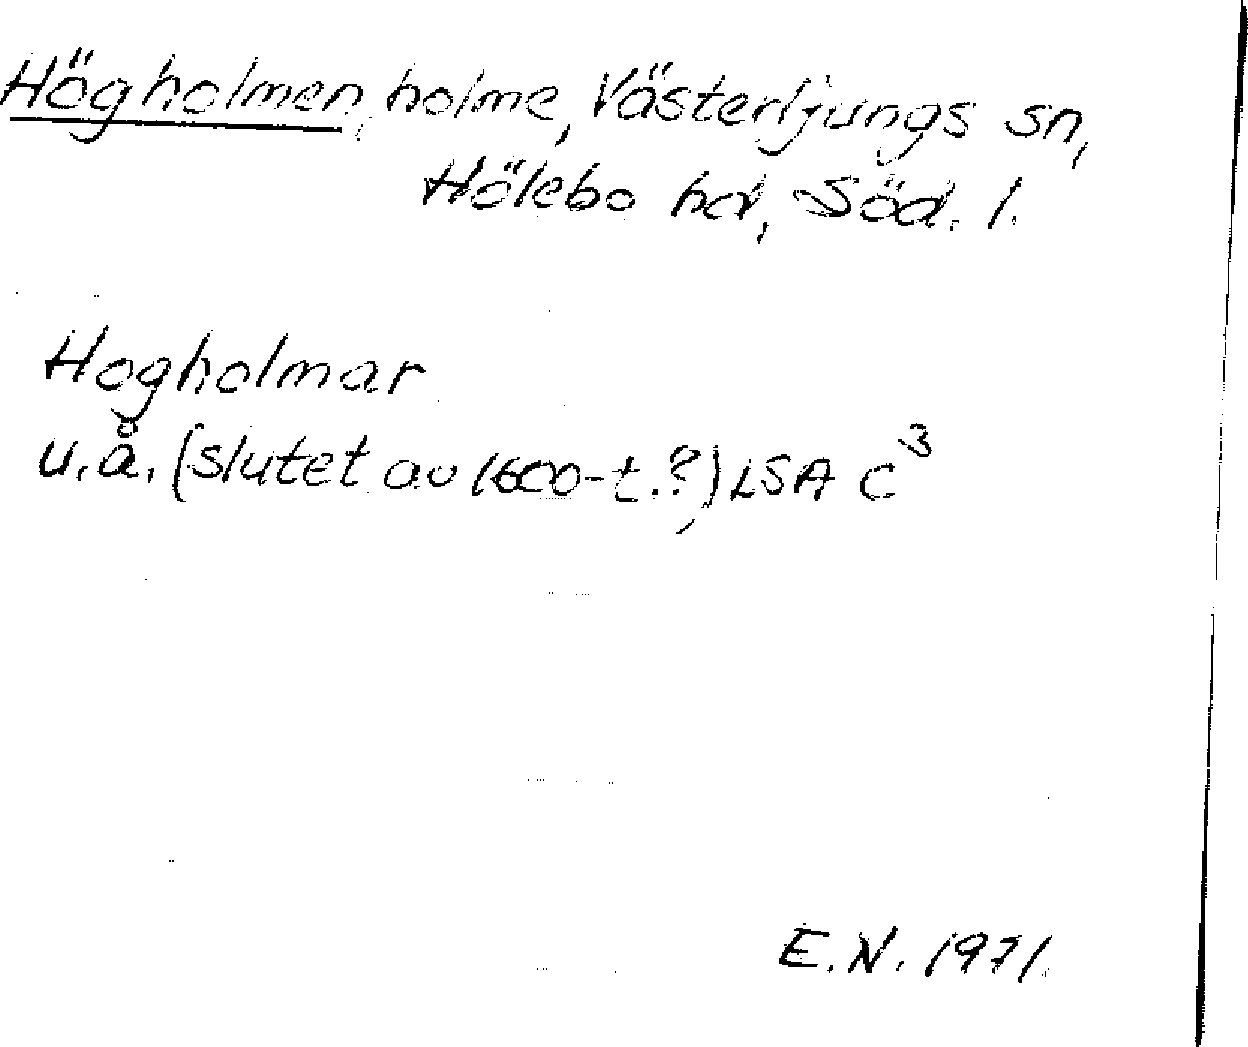 Högholmen, holme, Västerljungs sn,
Hölebo hd, Söd. l.
Hogholmar
u.å. (slutet av 1600-t.?) LSA C³
E.N. 1971.